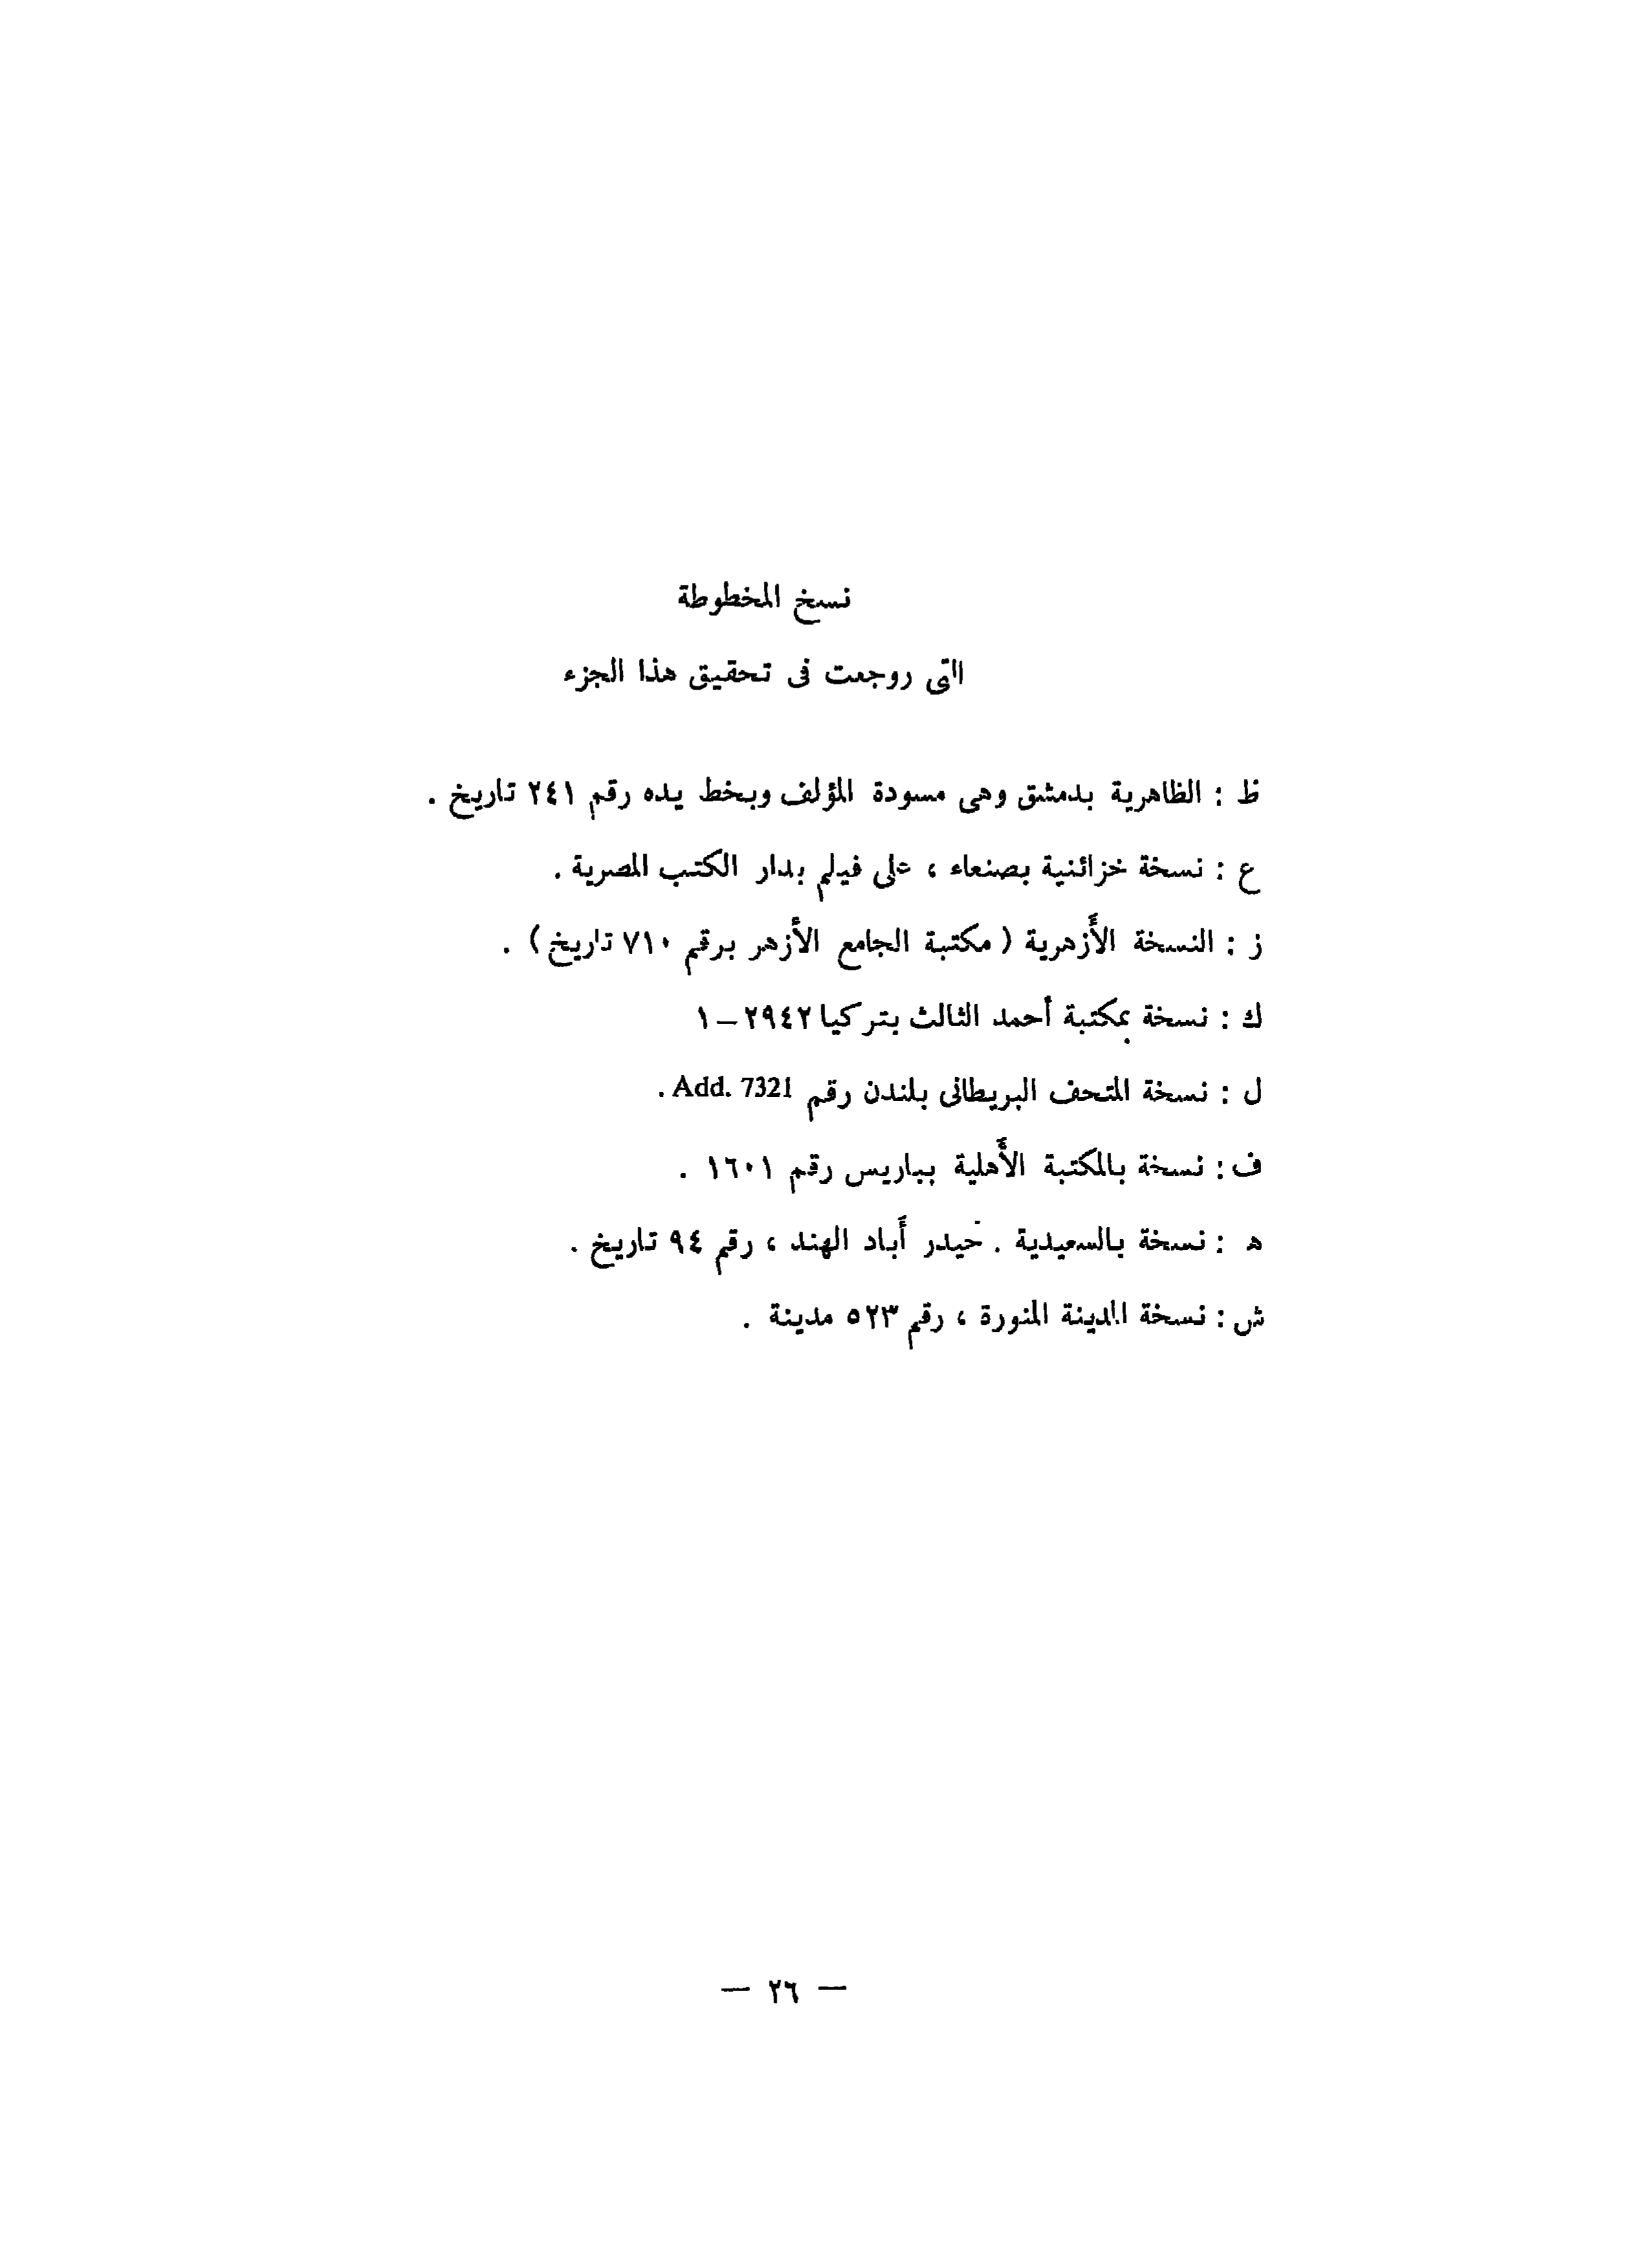 نسخ المخطوطة
التى روجعت فى تحقيق هذا الجزء
ظ : الظاهرية بدمشق وهى مسودة المؤلف وبخط يده رقم ٢٤١ تاريخ .
ع : نسخة خزائنية بصنعاء ، على فيلم بدار الكتب المصرية .
ز : النسخة الأَزهرية ( مكتبة الجامع الأَزهر برقم ٧١٠ تاريخ ) .
ك : نسخة بمكتبة أحمد الثالث بتركيا ٢٩٤٢ – ١
ل : نسخة المتحف البريطانى بلندن رقم Add. 7321 .
ف : نسخة بالمكتبة الأَهلية بباريس رقم ١٦٠١ .
ه : نسخة بالسعيدية . حيدر أَباد الهند ، رقم ٩٤ تاريخ .
ش : نسخة المدينة المنورة ، رقم ٥٢٣ مدينة .
— ٢٦ —